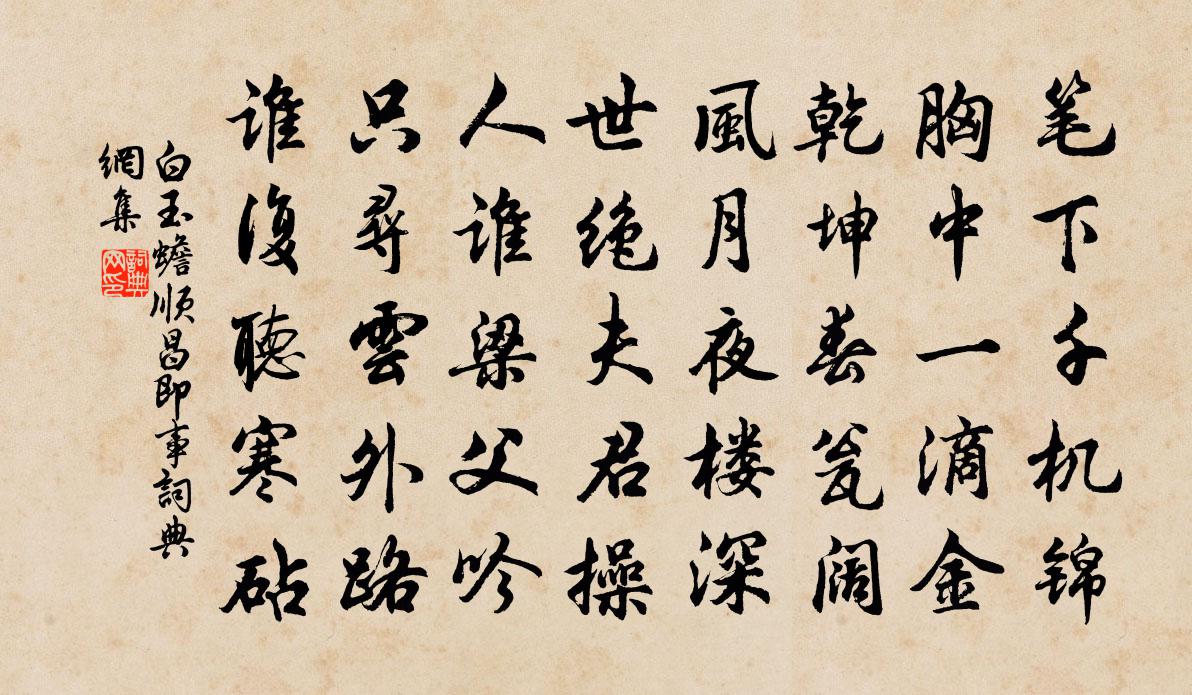 笔下千机锦
胸中一滴金
乾坤春瓮阔
風月夜楼深
世绝夫君操
人谁梁父吟
只尋雲外路
谁復聽寒砧
白玉蟾顺昌即事詞典
網集
詞典网印